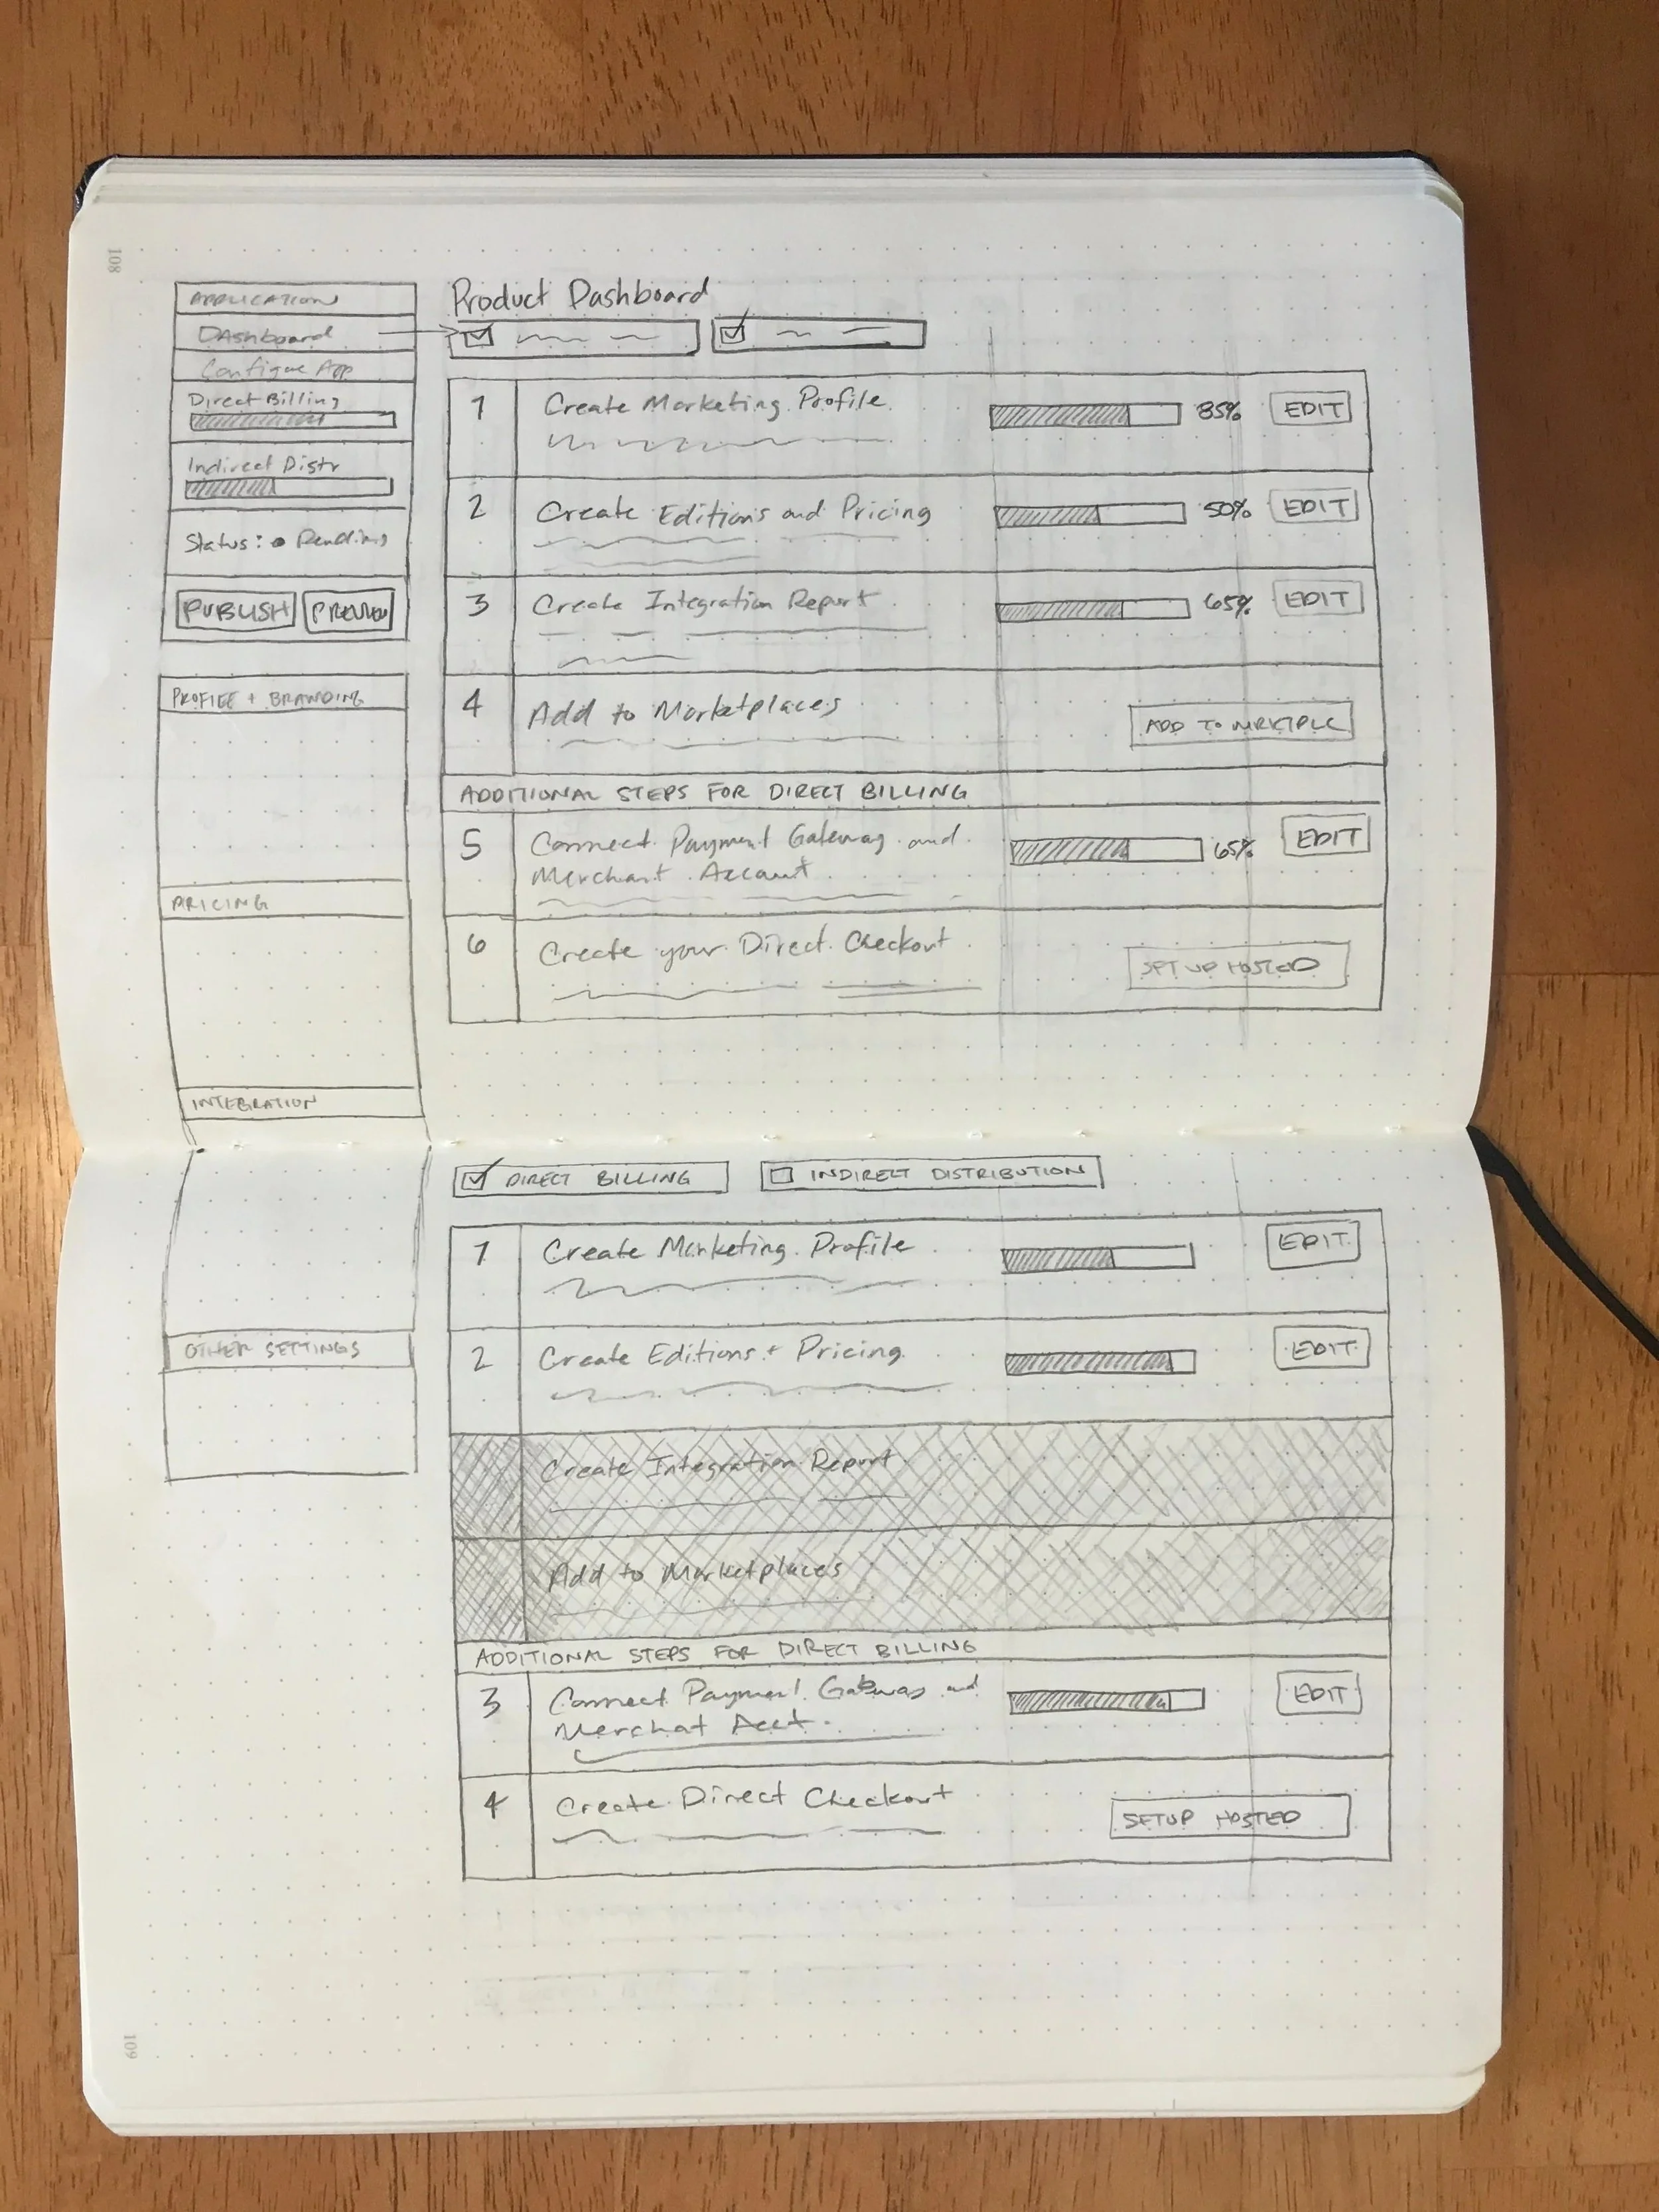 108
APPLICATION
Dashboard
Configure App
Direct Billing
Indirect Distr
Status: Pending
PUBLISH
PREVIEW
PROFILE + BRANDING
PRICING
INTEGRATION
OTHER SETTINGS
Product Dashboard
1 Create Marketing Profile 85% EDIT
2 Create Editions and Pricing 50% EDIT
3 Create Integration Report 65% EDIT
4 Add to Marketplaces ADD TO MRKTPLC
ADDITIONAL STEPS FOR DIRECT BILLING
5 Connect Payment Gateway and 65% EDIT
Merchant Account
6 Create your Direct Checkout SET UP HOSTED
DIRECT BILLING INDIRECT DISTRIBUTION
1 Create Marketing Profile EDIT
2 Create Editions + Pricing EDIT
Create Integration Report
Add to Marketplaces
ADDITIONAL STEPS FOR DIRECT BILLING
3 Connect Payment Gateway and EDIT
Merchat Acct.
4 Create Direct Checkout SETUP HOSTED
109